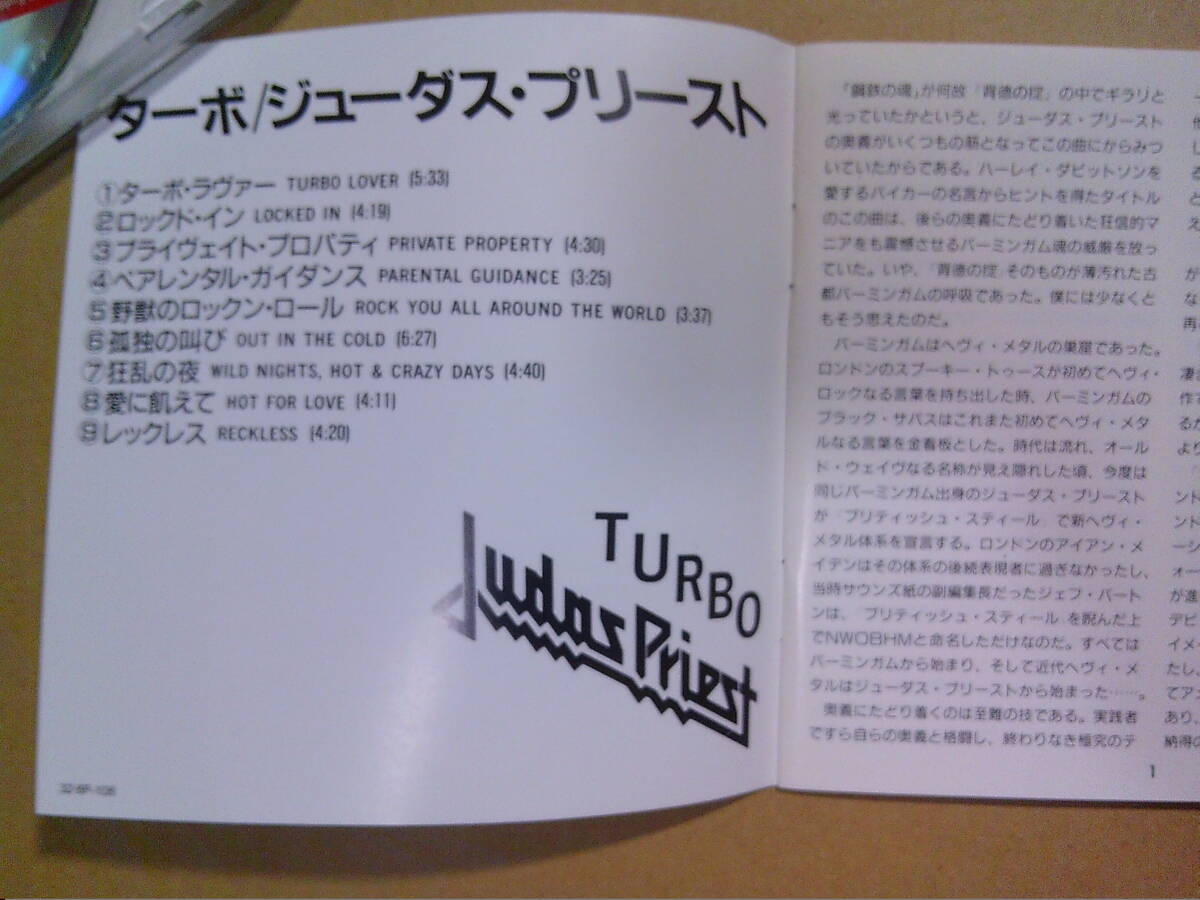 ターボ/ジューダス・プリースト
①ターボ・ラヴァー TURBO LOVER (5:33)
②ロックド・イン LOCKED IN (4:19)
③プライヴェイト・プロパティ PRIVATE PROPERTY (4:30)
④ペアレンタル・ガイダンス PARENTAL GUIDANCE (3:25)
⑤野獣のロックン・ロール ROCK YOU ALL AROUND THE WORLD (3:37)
⑥孤独の叫び OUT IN THE COLD (6:27)
⑦狂乱の夜 WILD NIGHTS, HOT & CRAZY DAYS (4:40)
⑧愛に飢えて HOT FOR LOVE (4:11)
⑨レックレス RECKLESS (4:20)
TURBO
Judas Priest
32·8P-108
「鋼鉄の魂」が何故『背徳の掟』の中でギラリと
光っていたかというと、ジューダス・プリースト
の奥義がいくつもの筋となってこの曲にからみつ
いていたからである。ハーレイ・ダビットソンを
愛するバイカーの名言からヒントを得たタイトル
のこの曲は、彼らの奥義にたどり着いた狂信的マ
ニアをも震憾させるバーミンガム魂の威厳を放っ
ていた。いや、『背徳の掟』そのものが薄汚れた古
都バーミンガムの呼吸であった。僕には少なくと
もそう思えたのだ。
バーミンガムはヘヴィ・メタルの巣窟であった。
ロンドンのスプーキー・トゥースが初めてヘヴィ・
ロックなる言葉を持ち出した時、バーミンガムの
ブラック・サバスはこれまた初めてヘヴィ・メタ
ルなる言葉を金看板とした。時代は流れ、オール
ド・ウェイヴなる名称が見え隠れした頃、今度は
同じバーミンガム出身のジューダス・プリースト
が『ブリティッシュ・スティール』で新ヘヴィ・
メタル体系を宣言する。ロンドンのアイアン・メ
イデンはその体系の後続表現者に過ぎなかったし、
当時サウンズ紙の副編集長だったジェフ・バート
ンは、『ブリティッシュ・スティール』を睨んだ上
でNWOBHMと命名しただけなのだ。すべては
バーミンガムから始まり、そして近代ヘヴィ・メ
タルはジューダス・プリーストから始まった……。
奥義にたどり着くのは至難の技である。実践者
ですら自らの奥義と格闘し、終わりなき極究のテ
1